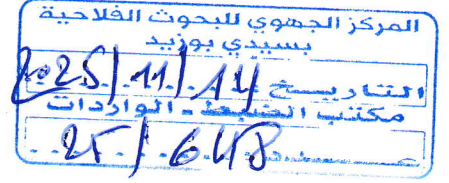 المركز الجهوي للبحوث الفلاحية
بسيدي بوزيد
التاريخ 2025/11/14
مكتب الضبط - الواردات
25/648